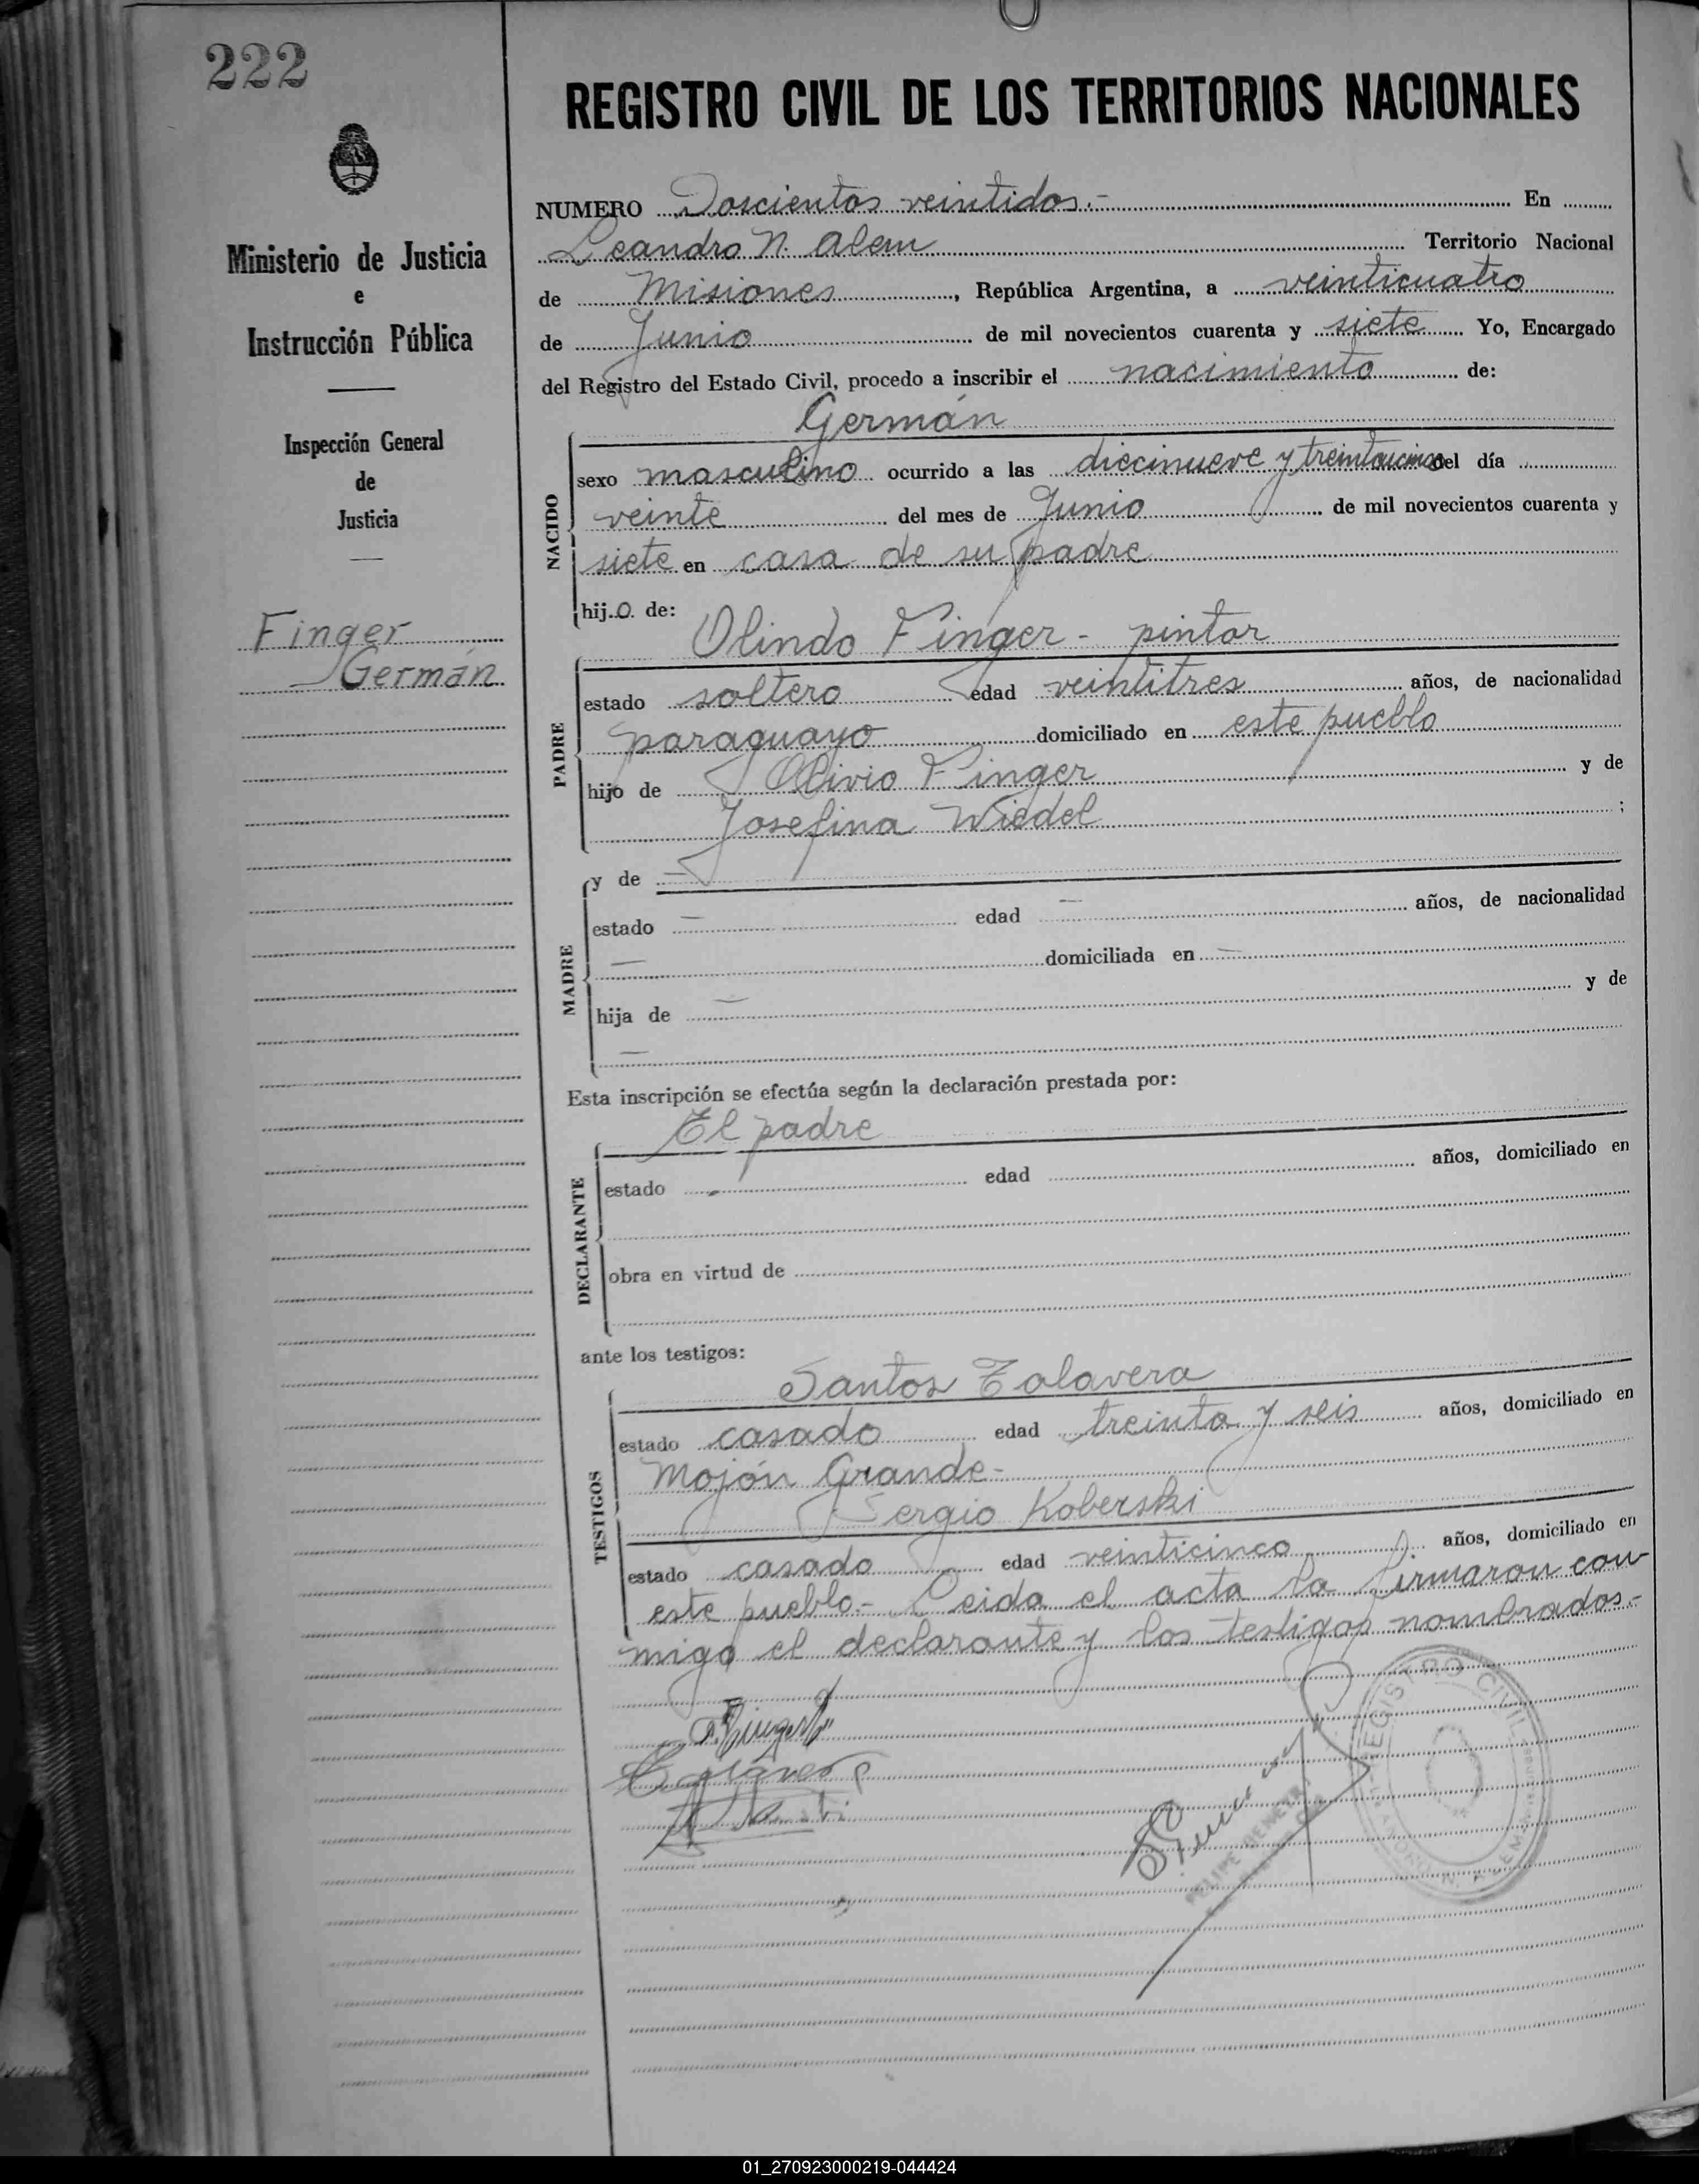 222
REGISTRO CIVIL DE LOS TERRITORIOS NACIONALES
Ministerio de Justicia
e
Instrucción Pública
Inspección General
de
Justicia
Finger
Germán
NUMERO Doscientos veintidos.- En
Leandro N. Alem Territorio Nacional
de Misiones, República Argentina, a veinticuatro
de Junio de mil novecientos cuarenta y siete Yo, Encargado
del Registro del Estado Civil, procedo a inscribir el nacimiento de:
Germán
NACIDO
sexo masculino ocurrido a las diecinueve y treintaicinco del día
veinte del mes de Junio de mil novecientos cuarenta y
siete en casa de su padre
hijo de:
Olindo Finger - pintor
PADRE
estado soltero edad veintitres años, de nacionalidad
paraguayo domiciliado en este pueblo
hijo de Olivio Finger y de
Josefina Wiedel ;
y de —
MADRE
estado — edad — años, de nacionalidad
— domiciliada en —
hija de — y de
—
Esta inscripción se efectúa según la declaración prestada por:
El padre
DECLARANTE
estado - edad años, domiciliado en
obra en virtud de
ante los testigos:
Santos Talavera
TESTIGOS
estado casado edad treinta y seis años, domiciliado en
Mojón Grande-
Sergio Koberski
estado casado edad veinticinco años, domiciliado en
este pueblo.- Leida el acta la firmaron con-
migo el declarante y los testigos nombrados.-
REGISTRO CIVIL
LEANDRO N. ALEM
01_270923000219-044424